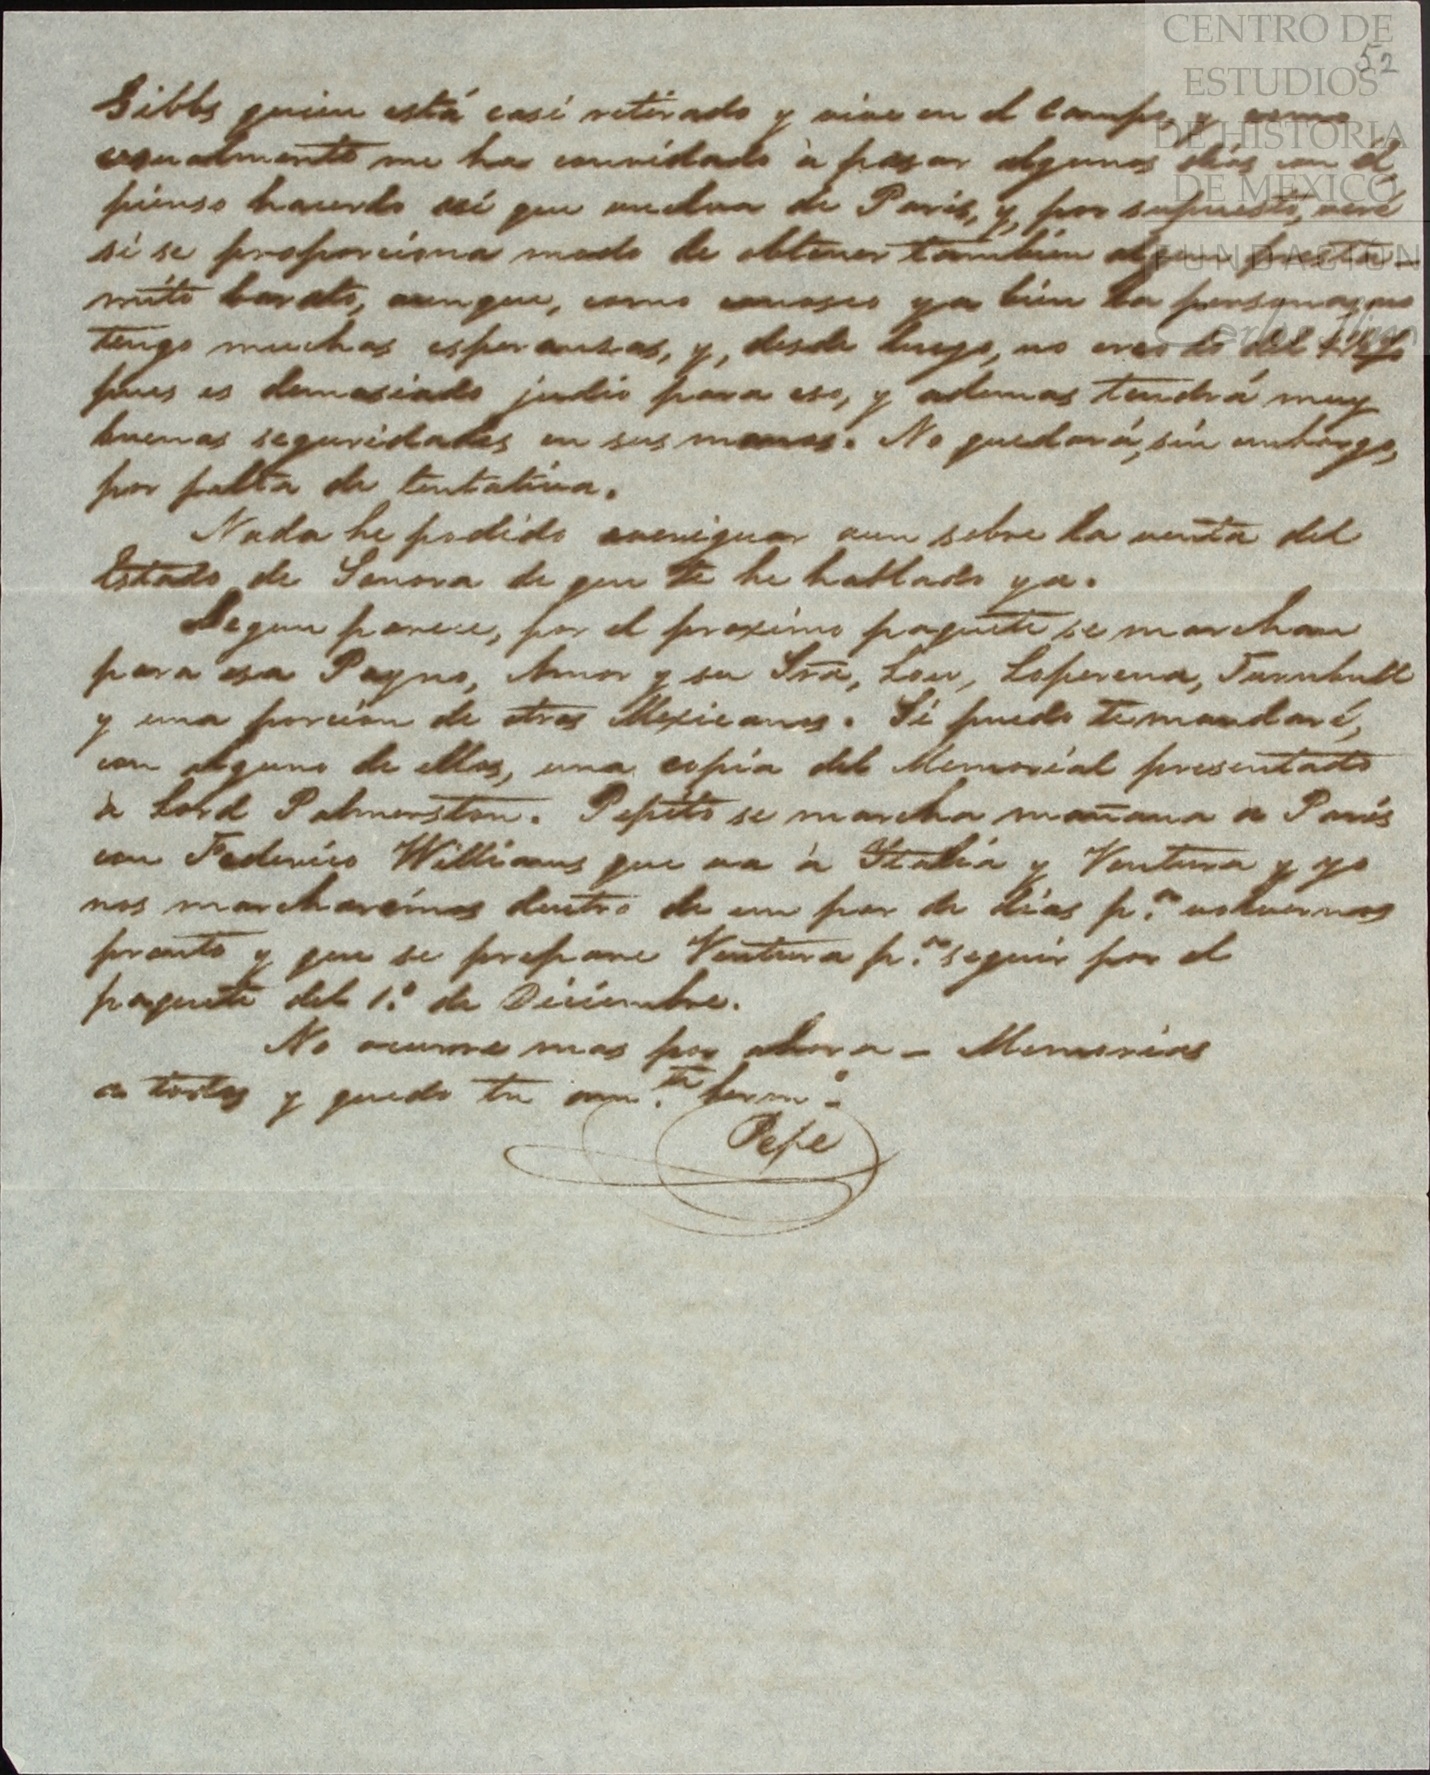 CENTRO DE
ESTUDIOS
DE HISTORIA
DE MEXICO
FUNDACIÓN
52
Gibbs quien está casi retirado y vive en el Campo, y como
casualmente me ha convidado à pasar algunos dias con el,
pienso hacerlo asi que vuelva de Paris, y, por supuesto, veré
si se proporciona modo de obtener tambien algun presta-
mito barato, aunque, como conosco ya bien la persona, no
tengo muchas esperansas, y, desde luego, no creo lo del
pues es demasiado judio para eso, y ademas tendrá muy
buenas seguridades en sus manos. No quedará, sin embargo,
por falta de tentativa.
Nada he podido averiguar aun sobre la venta del
Estado de Sonora de que te he hablado ya.
Segun parece, por el proximo paquete se marchan
para esa Payno, Amor y su Sra, Lou, Loperena, Turnbull
y una porcion de otros Mexicanos. Si puedo te mandaré,
con alguno de ellos, una copia del Memorial presentado
à Lord Palmerston. Pepito se marcha mañana a Paris
con Federico Williams que va à Italia y Ventura y yo
nos marcharémos dentro de un par de dias p.ª volvernos
pronto y que se prepare Ventura p.ª seguir por el
paquete del 1.º de Diciembre.
No ocurre mas por ahora – Memorias
a todos y quedo tu am.te herm.º
Pepe